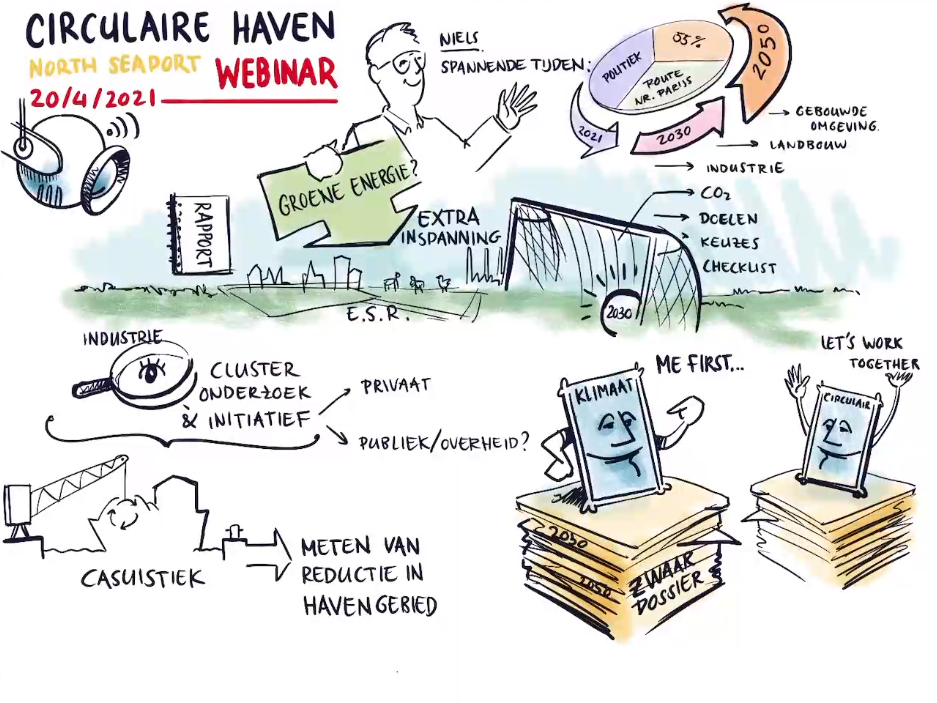 CIRCULAIRE HAVEN
NORTH SEAPORT WEBINAR
20/4/2021
NIELS
SPANNENDE TIJDEN:
POLITIEK
55%
ROUTE
NR. PARIJS
2021
2030
2050
GEBOUWDE
OMGEVING.
LANDBOUW
INDUSTRIE
CO2
DOELEN
KEUZES
CHECKLIST
GROENE ENERGIE?
RAPPORT
EXTRA
INSPANNING
E.S.R.
2030
INDUSTRIE
CLUSTER
ONDERZOEK
& INITIATIEF
PRIVAAT
PUBLIEK/OVERHEID?
CASUISTIEK
METEN VAN
REDUCTIE IN
HAVENGEBIED
ME FIRST...
KLIMAAT
2030
2050
ZWAAR
DOSSIER
LET'S WORK
TOGETHER
CIRCULAIR